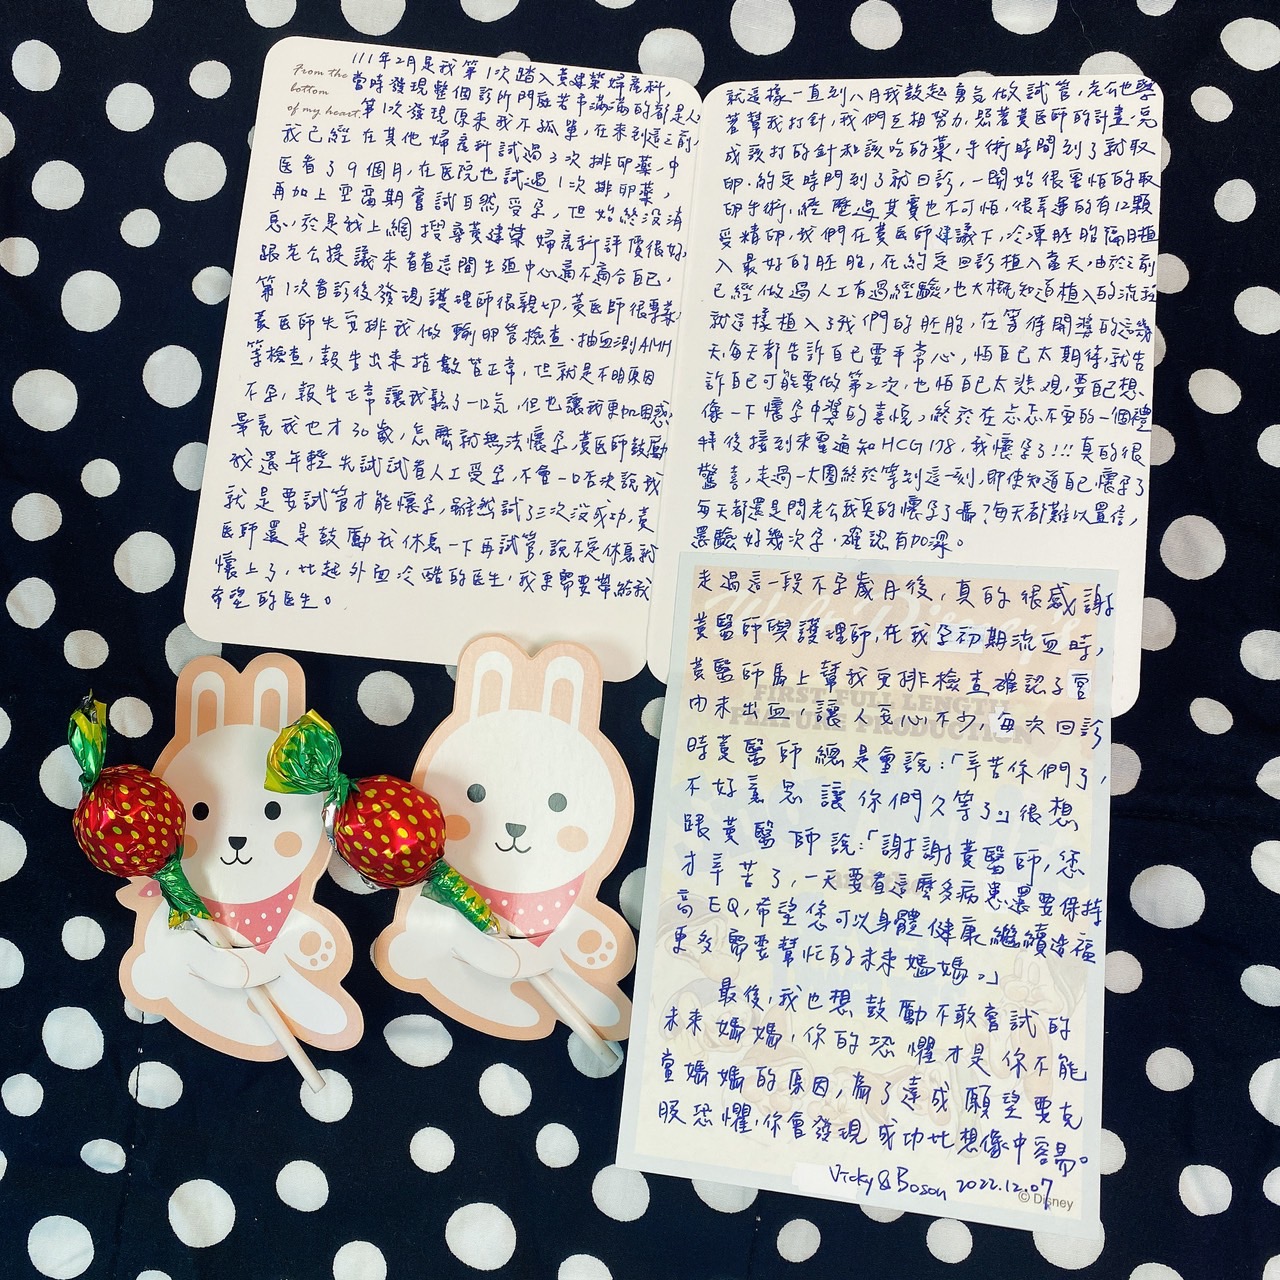 From the
bottom
of my heart.
111年2月是我第1次踏入黃建榮婦產科,
當時發現整個診所門庭若市滿滿的都是人
第1次發現原來我不孤單,在來到這之前,
我已經在其他婦產科試過3次排卵藥,中
医看了9個月,在医院也試過1次排卵藥,
再加上空窗期嘗試自然受孕,但始終沒消
息,於是我上網搜尋黃建榮婦產科評價很好,
跟老公提議來看看這間生殖中心適不適合自己,
第1次看診後發現護理師很親切,黃医師很專業,
黃医師先安排我做輸卵管檢查、抽血測AMH
等檢查,報告出來指數皆正常,但就是不明原因
不孕,報告正常讓我鬆了一口氣,但也讓我更加困惑,
畢竟我也才30歲,怎麼就無法懷孕,黃医師鼓勵
我還年輕先試試看人工受孕,不會一口否決說我
就是要試管才能懷孕,雖然試了三次沒成功,黃
医師還是鼓勵我休息一下再試管,說不定休息就
懷上了,比起外面冷酷的医生,我更需要帶給我
希望的医生。
就這樣一直到八月我鼓起勇気做試管,老公也學
著幫我打針,我們互相努力,照著黃医師的計畫,完
成該打的針和該吃的藥,手術時間到了就取
卵,約定時間到了就回診,一開始很害怕的取
卵手術,經歷過其實也不可怕,很幸運的有12顆
受精卵,我們在黃医師建議下,冷凍胚胎隔月植
入最好的胚胎,在約定回診植入當天,由於之前
已經做過人工有過經驗,也大概知道植入的流程
就這樣植入了我們的胚胎,在等待開獎的這幾
天,每天都告訴自己要平常心,怕自己太期待,就告
訴自己可能要做第二次,也怕自己太悲觀,要自己想
像一下懷孕中獎的喜悅,終於在忐忑不安的一個禮
拜後接到來電通知HCG 178,我懷孕了!!!真的很
驚喜,走過一大圈終於等到這一刻,即使知道自己懷孕了
每天都還是問老公我真的懷孕了嗎?每天都難以置信,
還驗好幾次孕,確認有加深。
走過這一段不孕歲月後,真的很感謝
黃醫師與護理師,在我孕初期流血時,
黃醫師馬上幫我安排檢查確認子宮
內未出血,讓人安心不少,每次回診
時黃醫師總是會說:「辛苦你們了,
不好意思讓你們久等了」很想
跟黃醫師說:「謝謝黃醫師,您
才辛苦了,一天要看這麼多病患還要保持
高EQ,希望您可以身體健康繼續造福
更多需要幫忙的未來媽媽。」
最後,我也想鼓勵不敢嘗試的
未來媽媽,你的恐懼才是你不能
當媽媽的原因,為了達成願望要克
服恐懼,你會發現成功比想像中容易。
Vicky & Boson 2022.12.07
© Disney
FIRST FULL LENGTH
FEATURE PRODUCTION